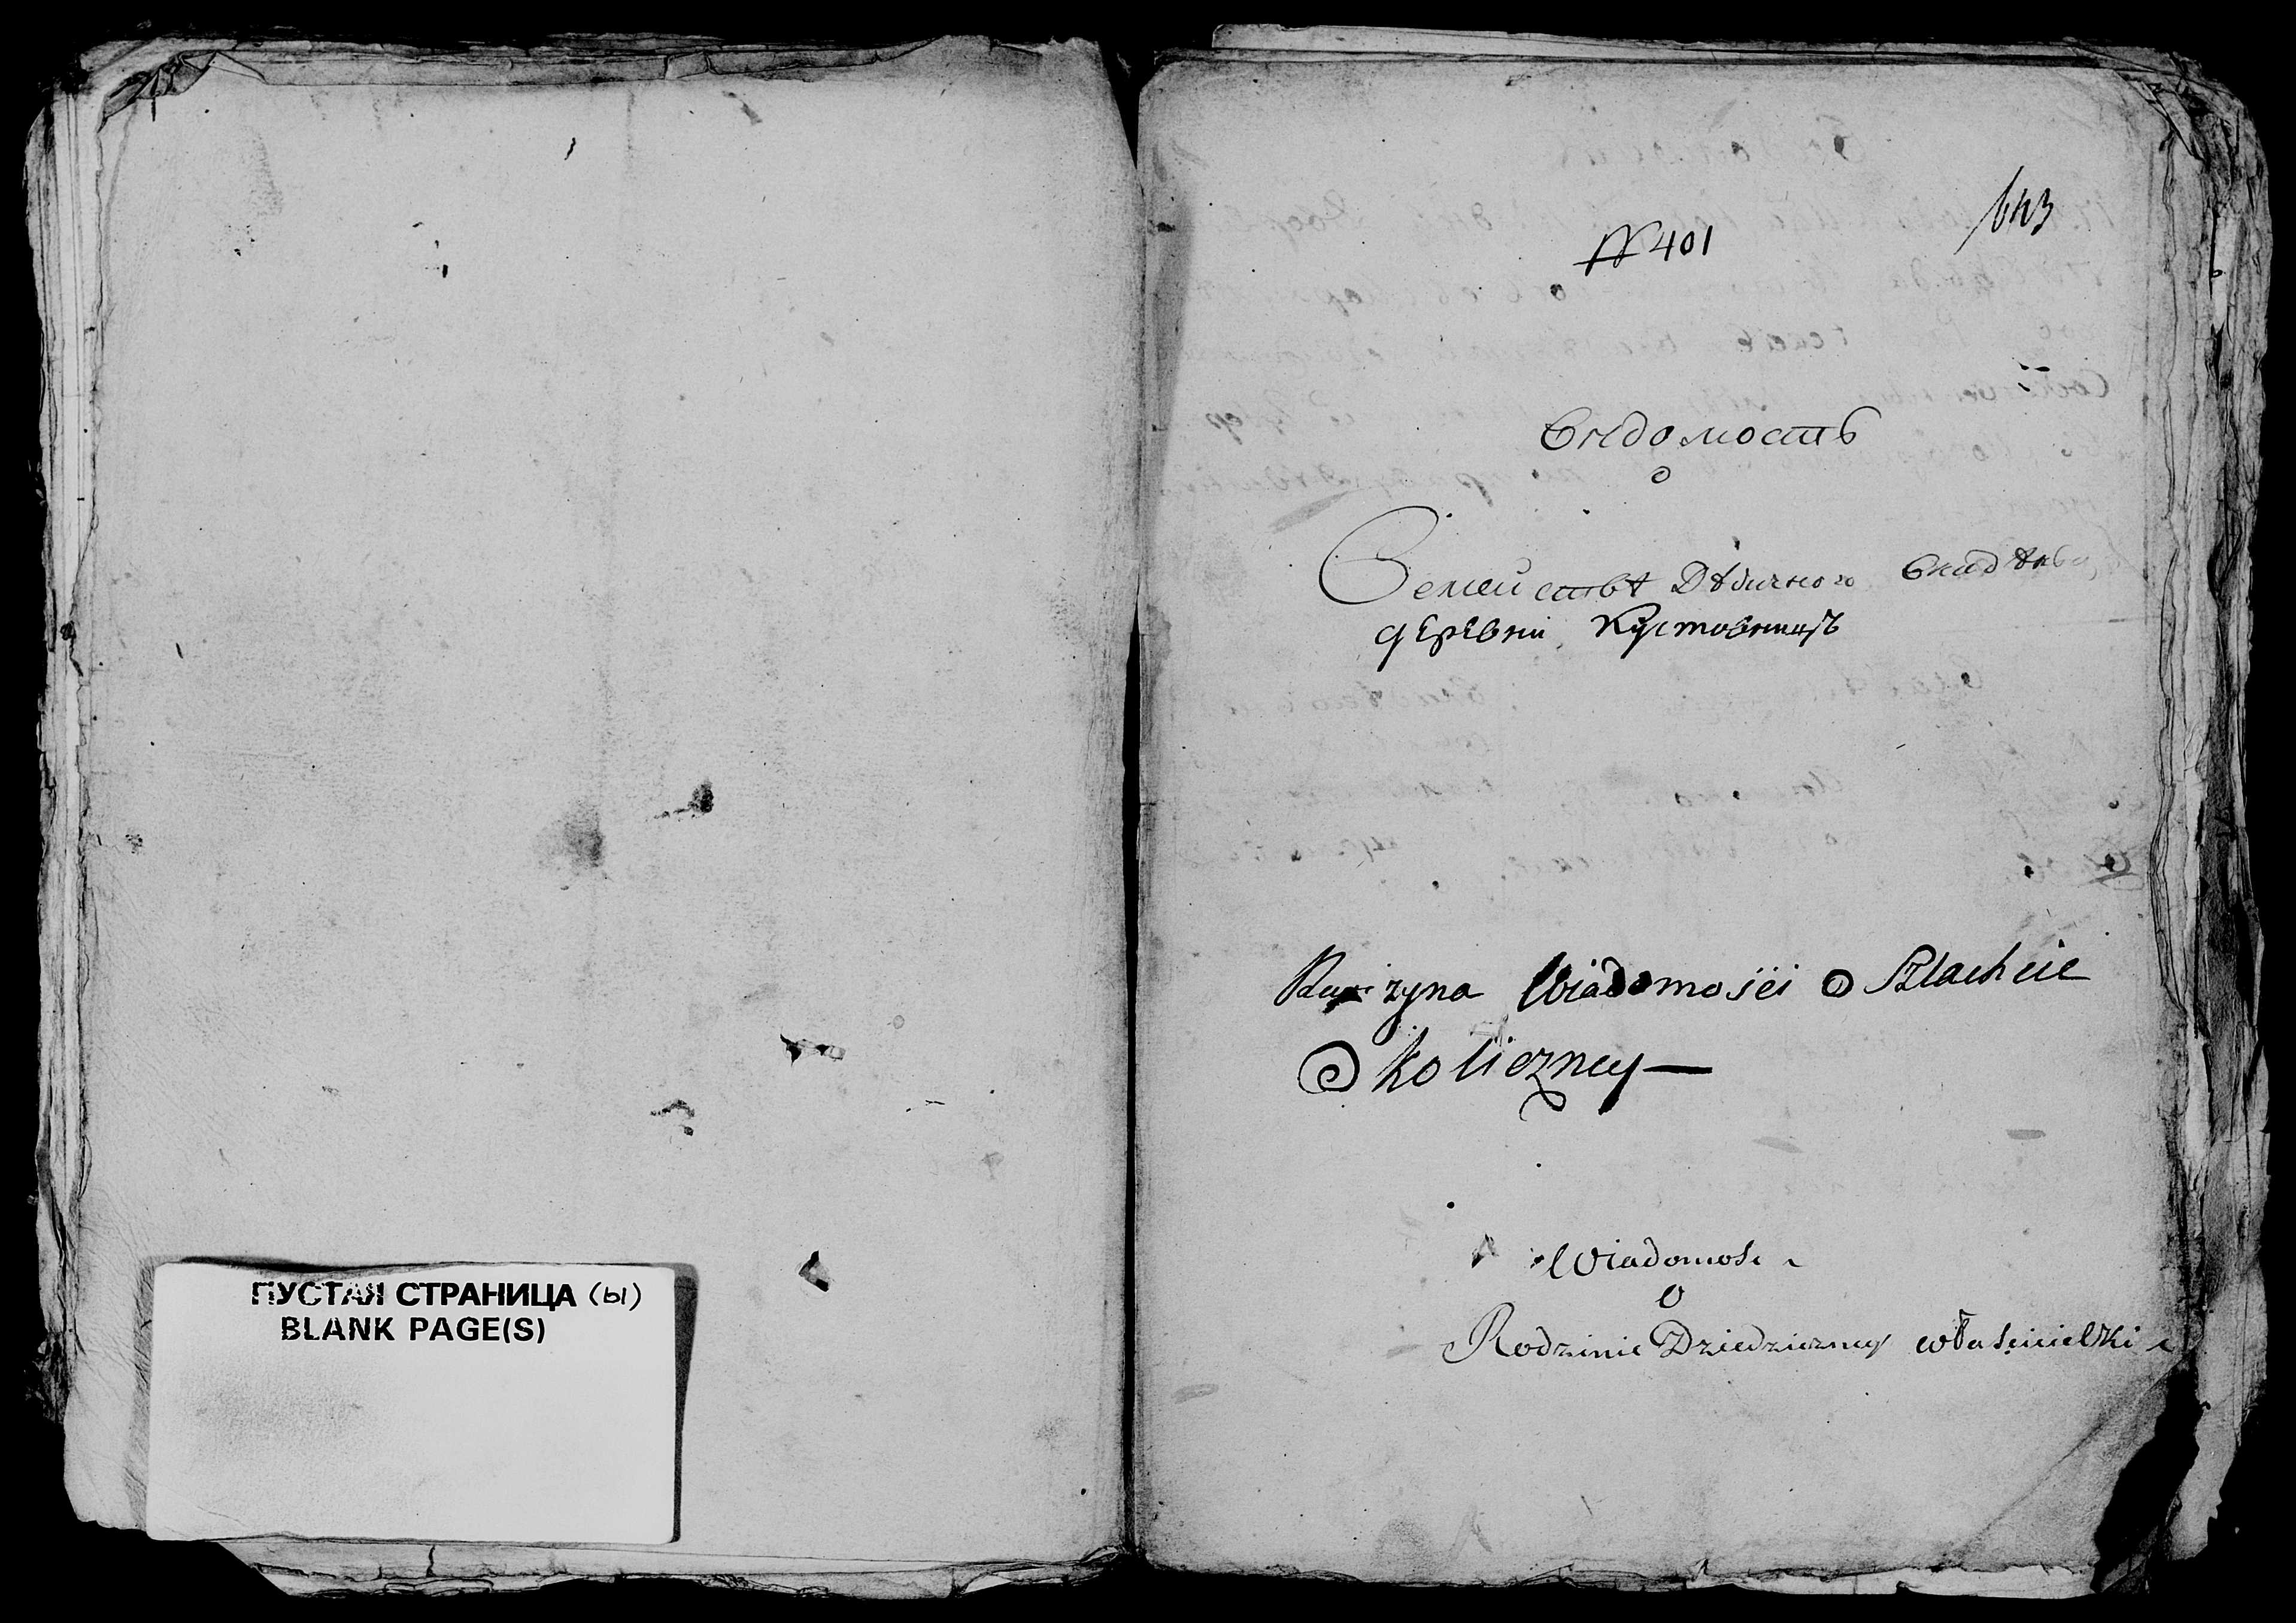 ПУСТАЯ СТРАНИЦА (ы)
BLANK PAGE(S)
643
№ 401
Вѣдомость
о
Семействѣ Дѣдичного
деревни Кустовницъ
Wiadomości o Szlachcie
Okoliczney —
Wiadomość
O
Rodzinie Dziedziczney właścicielki